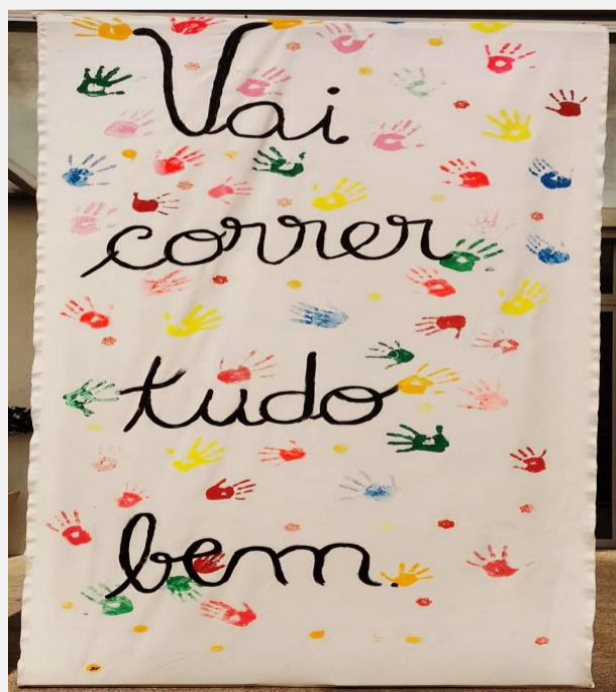 Vai
correr
tudo
bem.